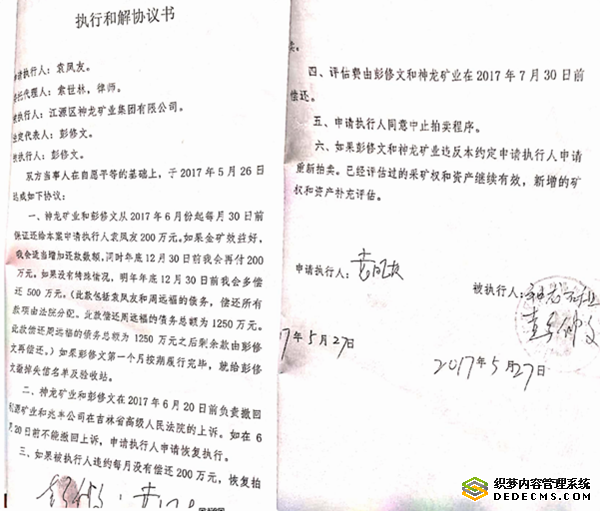 执行和解协议书
申请执行人：袁凤友。
委托代理人：索世林，律师。
被执行人：江源区神龙矿业集团有限公司。
法定代表人：彭修文。
被执行人：彭修文。
双方当事人在自愿平等的基础上，于2017年5月26日
达成如下协议：
一、神龙矿业和彭修文从2017年6月份起每月30日前
保证还给本案申请执行人袁凤友200万元。如果金矿效益好，
我会适当增加还款数额，同时年底12月30日前我会再付200
万元。如果没有特殊情况，明年年底12月30日前我会多偿
还500万元。（此款包括袁凤友和周远福的债务，偿还所有
款项由法院分配。此款偿还周远福的债务总额为1250万元。
此款偿还周远福的债务总额为1250万元之后剩余款由彭修
文再偿还。）如果彭修文第一个月按期履行完毕，就给彭修
文撤掉失信名单及验收站。
二、神龙矿业和彭修文在2017年6月20日前负责撤回
利源矿业和兆半公司在吉林省高级人民法院的上诉。如在6
月20日前不能撤回上诉，申请执行人申请恢复执行。
三、如果被执行人违约每月没有偿还200万元，恢复拍
卖。
四、评估费由彭修文和神龙矿业在2017年7月30日前
偿还。
五、申请执行人同意中止拍卖程序。
六、如果彭修文和神龙矿业违反本约定申请执行人申请
重新拍卖。已经评估过的采矿权和资产继续有效，新增的矿
权和资产补充评估。
申请执行人：
被执行人：
17年5月27日
2017年5月27日
织梦内容管理系统
DEDECMS.COM